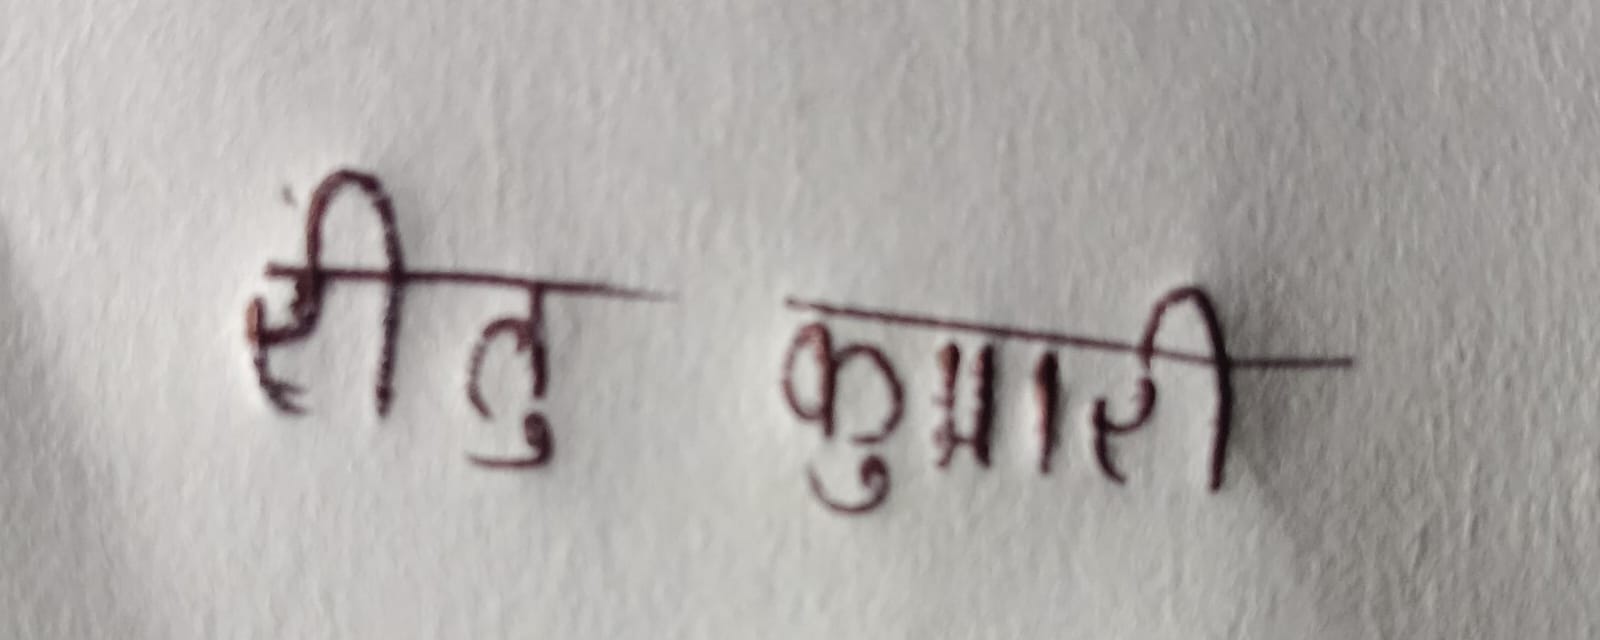 रीतु कुमारी